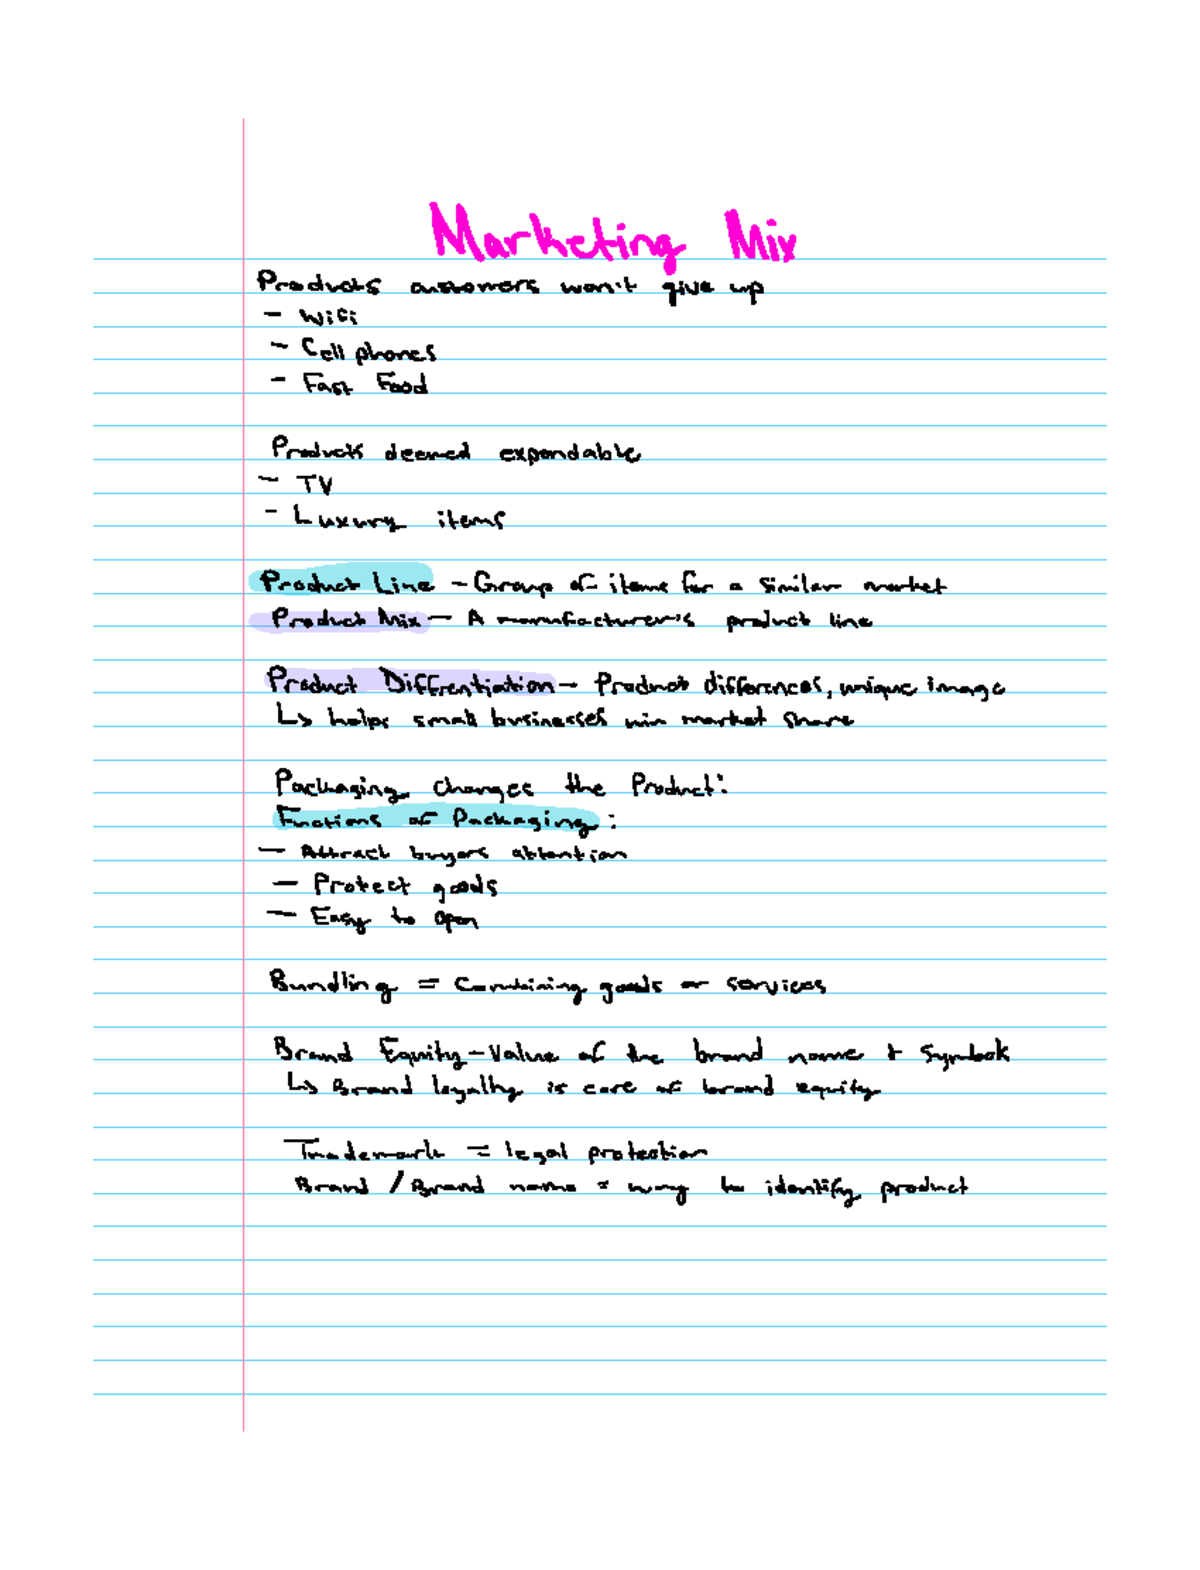 Marketing Mix
Products customers won't give up
- Wifi
- Cell phones
- Fast Food
Products deemed expandable
- TV
- Luxury items
Product Line - Group of items for a similar market
Product Mix - A manufacturer's product line
Product Diffrentiation - Product differences, unique image
↳ helps small businesses win market share
Packaging changes the Product:
Functions of Packaging:
- Attract buyers attention
- Protect goods
- Easy to open
Bundling = Combining goods or services
Brand Equity - Value of the brand name + symbols
↳ Brand loyalty is core of brand equity
Trademark = legal protection
Brand / Brand name = way to identify product